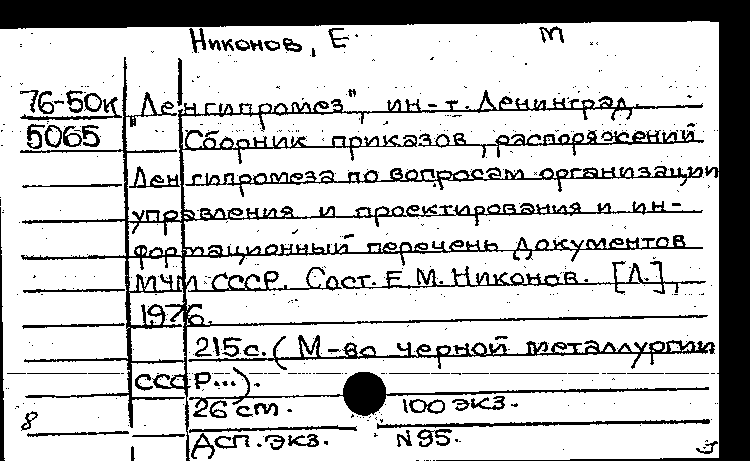 Никонов, Е. М
76-50к "Ленгипромез", ин-т. Ленинград.
5065 Сборник приказов, распоряжений
Ленгипромеза по вопросам организации
управления и проектирования и ин-
формационный перечень документов
МЧМ СССР. Сост. Е.М. Никонов. [Л.],
1976.
215с. (М-во черной металлургии
СССР...).
26 см. 100 экз.
8
Дсп. экз. N95.